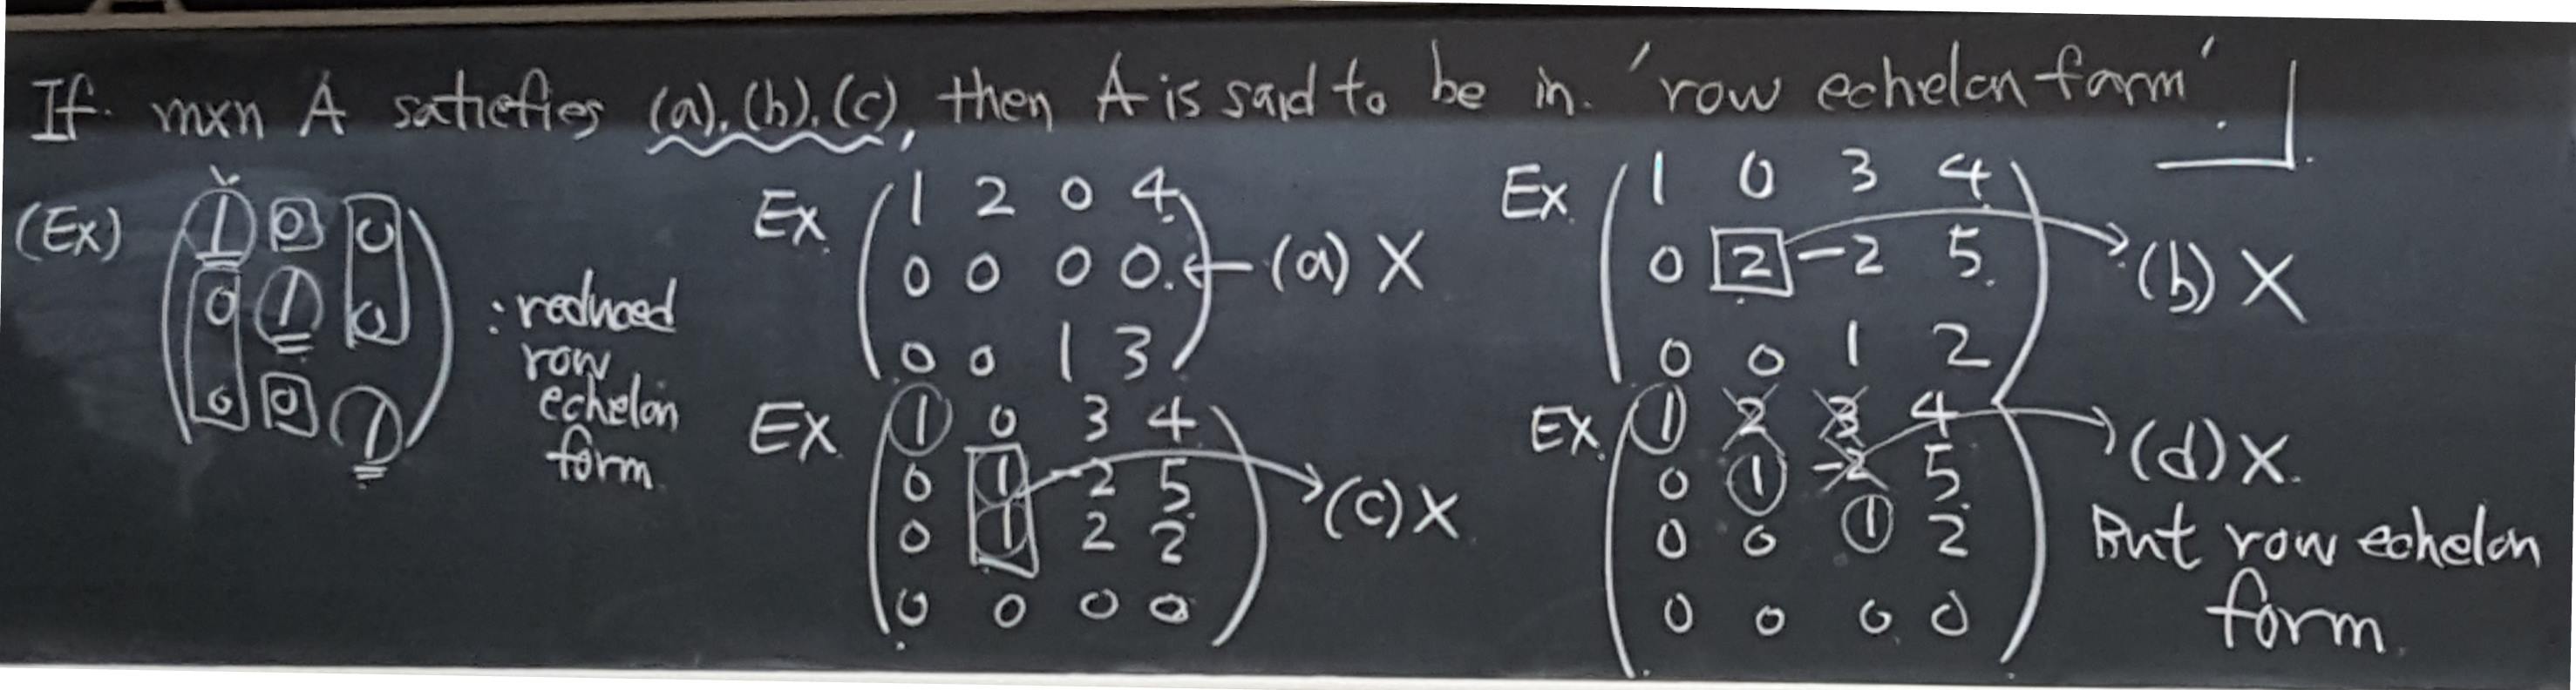 If mxn A satisfies (a), (b), (c), then A is said to be in 'row echelon form'
(Ex)
1 0 0
0 1 0
0 0 1
: reduced
row
echelon
form
Ex.
1 2 0 4
0 0 0 0 ← (a) X
0 0 1 3
Ex.
1 0 3 4
0 2 -2 5 → (b) X
0 0 1 2
Ex.
1 0 3 4
0 1 -2 5 → (c) X
0 1 2 2
0 0 0 0
Ex.
1 2 3 4
0 1 -2 5 → (d) X.
0 0 1 2
0 0 0 0
But row echelon
form.